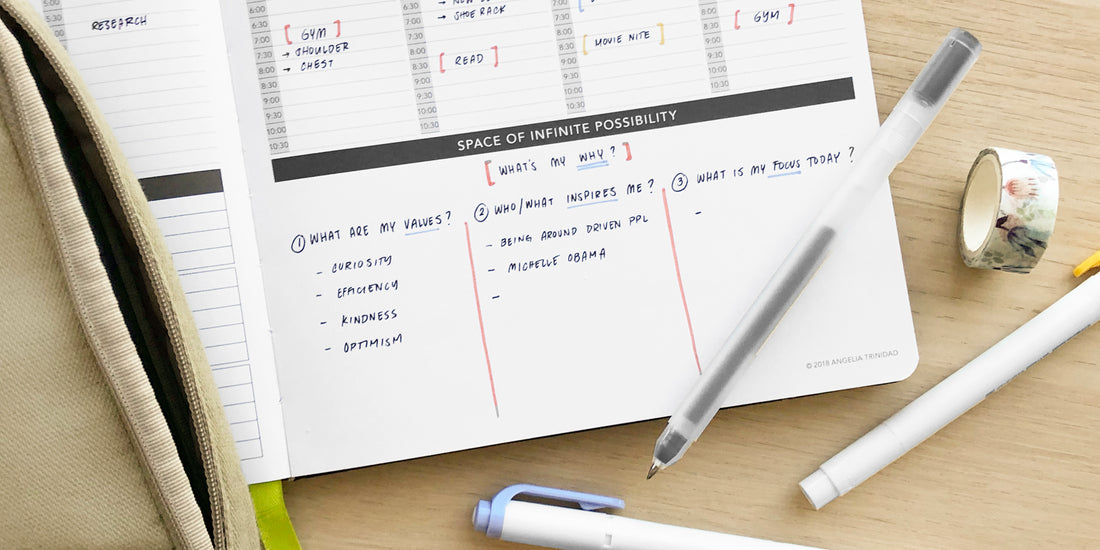 RESEARCH
6:00
6:30
7:00
7:30
8:00
8:30
9:00
9:30
10:00
10:30
[ GYM ]
→ SHOULDER
→ CHEST
6:30
7:00
7:30
8:00
8:30
9:00
9:30
10:00
10:30
→ SHOE RACK
[ READ ]
6:00
6:30
7:00
7:30
8:00
8:30
9:00
9:30
10:00
10:30
[ MOVIE NITE ]
6:00
6:30
7:00
7:30
8:00
8:30
9:00
9:30
10:00
10:30
[ GYM ]
SPACE OF INFINITE POSSIBILITY
[ WHAT'S MY WHY? ]
① WHAT ARE MY VALUES?
- CURIOSITY
- EFFICIENCY
- KINDNESS
- OPTIMISM
② WHO/WHAT INSPIRES ME?
- BEING AROUND DRIVEN PPL
- MICHELLE OBAMA
-
③ WHAT IS MY FOCUS TODAY?
-
© 2018 ANGELIA TRINIDAD